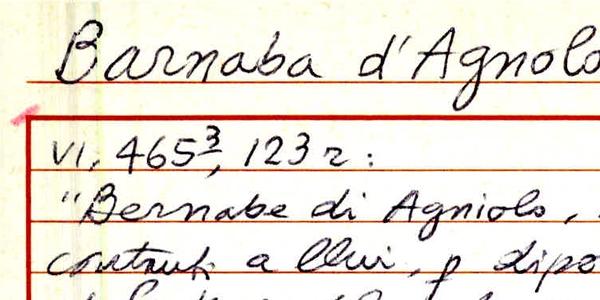 Barnaba d'Agnolo
VI, 465³, 123 r :
"Bernabe di Agniolo,
contanti a llui, p dipo